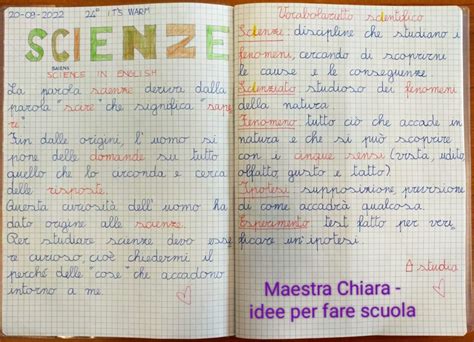 20-09-2022 24° IT'S WARM
SCIENZE
SAIENS
SCIENCE IN ENGLISH
La parola scienze deriva dalla
parola "scire" che significa "sape
re"
Fin dalle origini, l'uomo si
pone delle domande su tutto
quello che lo circonda e cerca
delle risposte.
Questa curiosità dell'uomo ha
dato origine alle scienze.
Per studiare scienze devo esse
re curioso, cioè chiedermi il
perché delle "cose" che accadono
intorno a me.
Vocabolarietto scientifico
Scienze: discipline che studiano i
fenomeni, cercando di scoprirne
le cause e le conseguenze.
Scienziato: studioso dei fenomeni
della natura.
Fenomeno: tutto ciò che accade in
natura e che si può scoprire
con i cinque sensi (vista, udito
olfatto, gusto e tatto)
Ipotesi: supposizione, previsione
di come accadrà qualcosa.
Esperimento: test fatto per veri
ficare un'ipotesi.
studia
Maestra Chiara -
idee per fare scuola